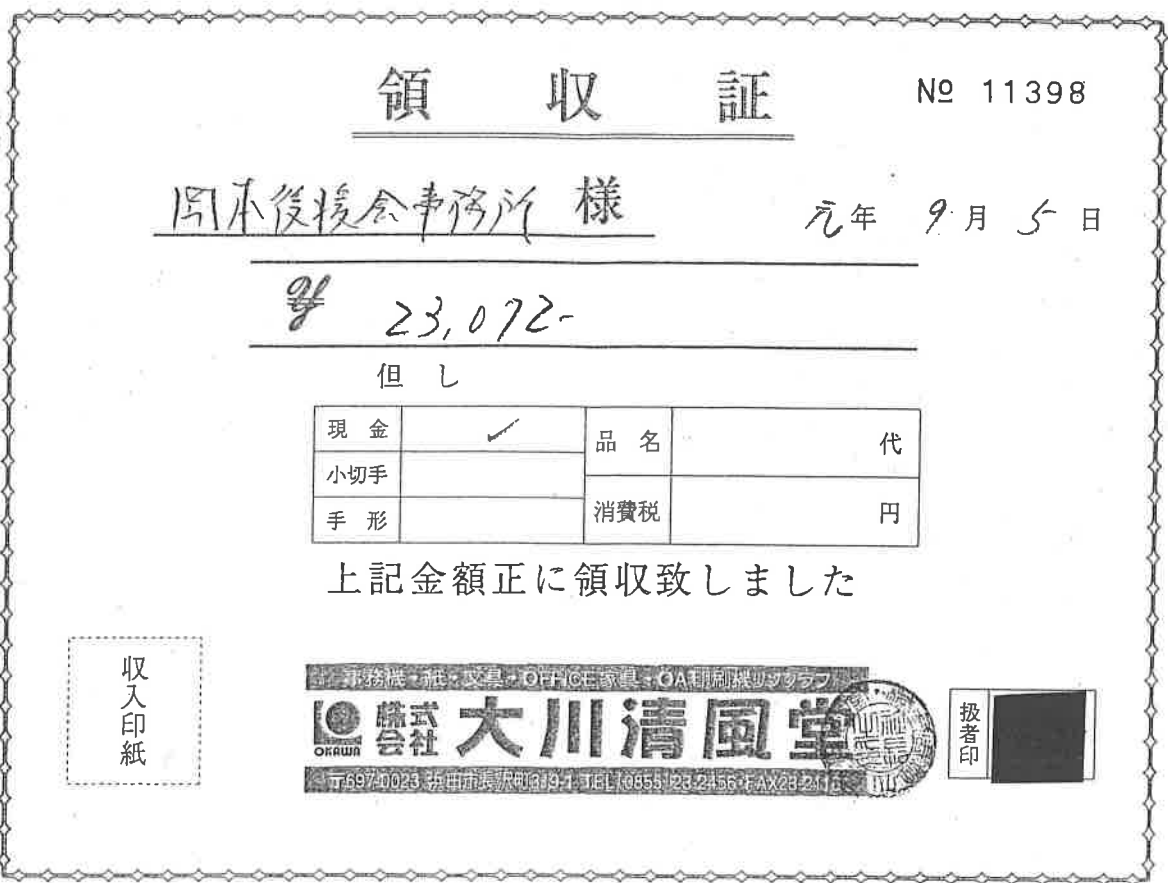 領収証
№ 11398
岡本後援会事務所 様
元年 9月 5日
¥ 23,072-
但し
現金 ✓
小切手
手形
品名 代
消費税 円
上記金額正に領収致しました
収入印紙
事務機・紙・文具・OFFICE家具・OA印刷機リソグラフ
OKAWA 株式会社 大川清風堂
〒697-0023 浜田市長沢町319-1 TEL(0855)28-2456・FAX28-
扱者印